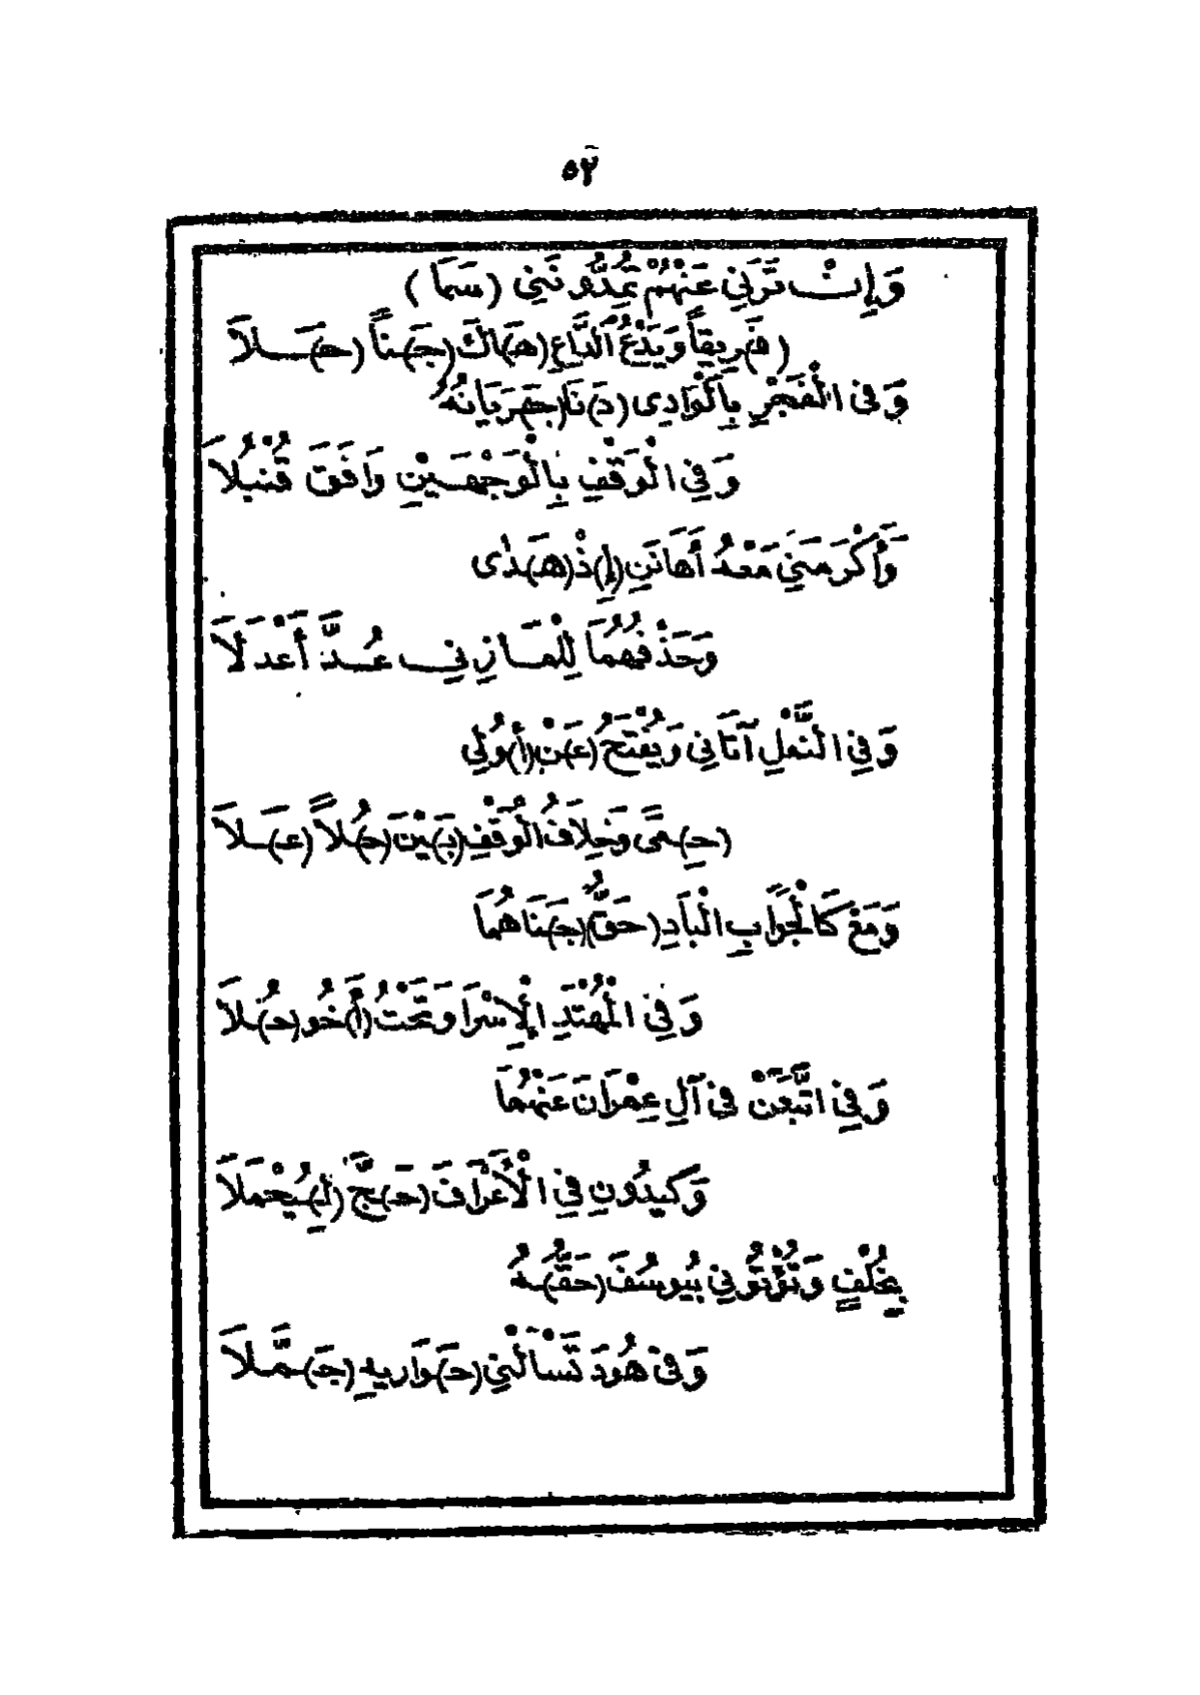 ٥٢
وَإِنْ تَرَنِي عَنْهُمْ تُمِدُّونَنِي (سَمَا)
(فَ)رِيقاً وَيَدْعُ الدَّاعِ (هَ)اكَ (جَ)ناً (حَ)ـلاَ
وَفي الْفَجْرِ بِالْوَادِى (دَ)نَا (جَ)رَيَانُهُ
وَفِي الْوَقْفِ بِالْوَجْهَيْنِ وَافَقَ قُنْبُلاَ
وَأَكْرَمَنِي مَعْهُ أَهَانَنِ (إِ)ذْ (هَـ)دٰى
وَحَذْفُهُمَا لِلْمَازِنِي عُدَّ أَعْدَلاَ
وَفِي النَّمْلِ آتَانِي وَيُفْتَحُ (عَ)نْ (أُ)ولِي
(حِ)ـمىً وَخِلاَفُ الْوَقْفِ (بَ)يْنَ (حُ)لاً (عَ)ـلاَ
وَمَعْ كَالْجَوَابِ الْبَادِ (حَقٌّ) (جَ)نَاهُمَا
وَفِي الْمُهْتَدِ الْإِسْرَا وَتَحْتُ (أَ)خُو (حُ)ـلاَ
وَفِي اتَّبَعَنْ في آلِ عِمْرَانَ عَنْهُمَا
وَكِيدُونِ فِي الْأَعْرَافَ (حَ)ـجَّ (لِ)ـيُحْمَلاَ
بِخُلْفٍ وَتُؤْتُونِي بِيُوسُفَ (حَقُّ)ـهُ
وَفي هُودَ تَسْأَلْنِي (حَ)وَارِيهِ (جَ)ـمَّلاَ